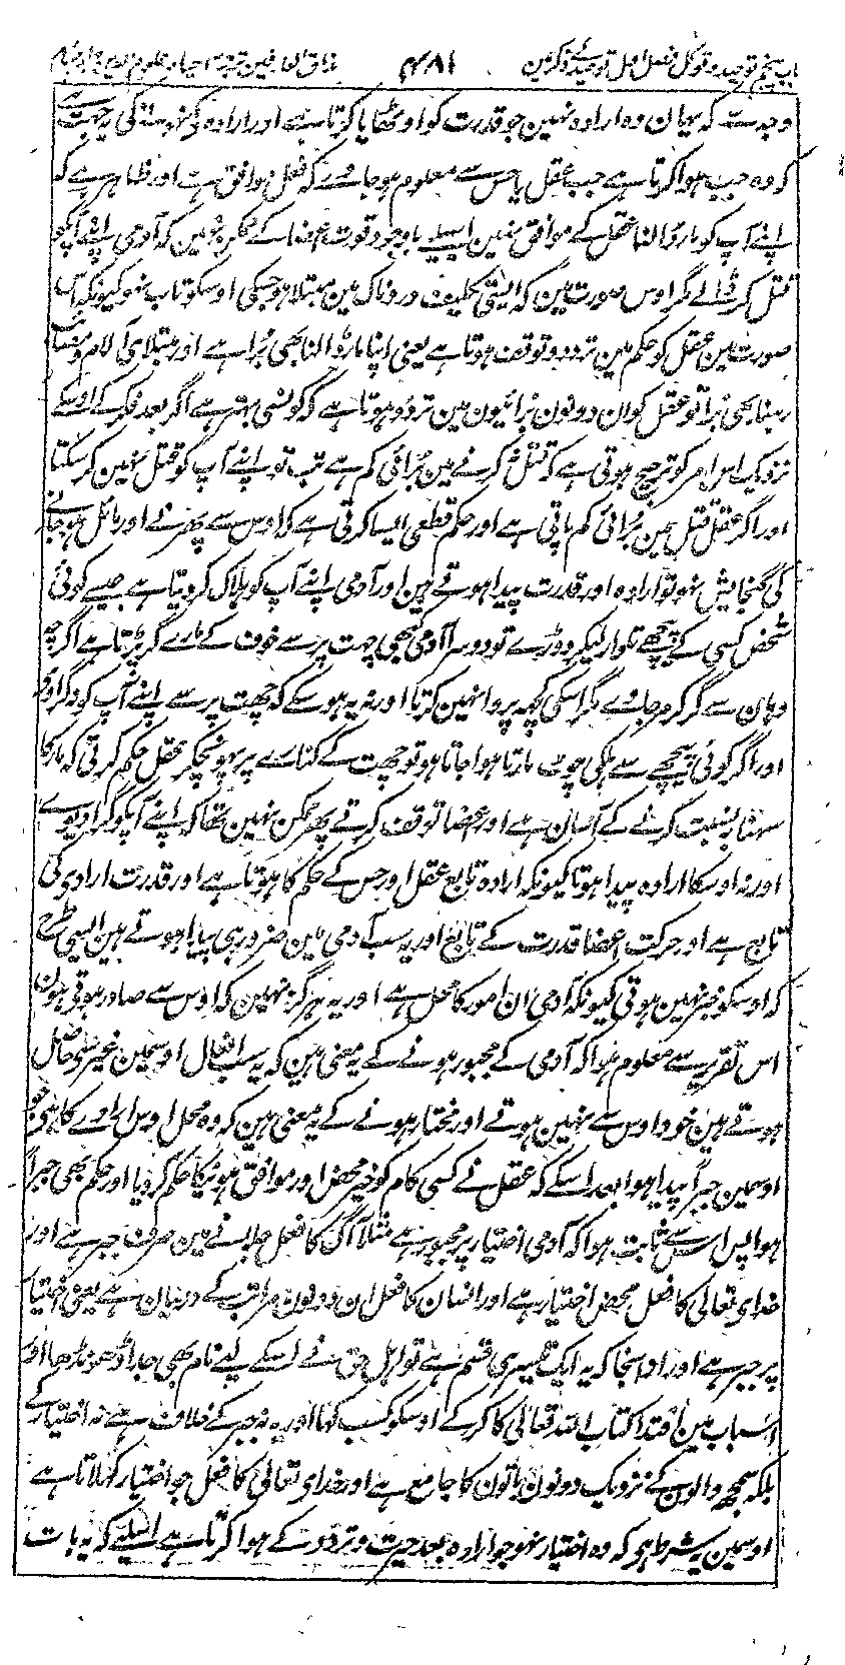 باب پنجم توحید و توکل فصل اول توحید کے ذکر مین ۴۸۱ مذاق العارفین ترجمہ احیاء علوم الدین جلد چہارم
وجہ سے کہ یہان وہ ارادہ نہین جو قدرت کو اوبھٹایا کرتا ہے اور ارادہ کے نہونے کی یہ جہت ہے
کہ وہ جب ہوا کرتا ہے جب عقل یا حس سے معلوم ہو جاوے کہ فعل موافق ہے اور ظاہر ہے کہ
اپنے آپ کو مار ڈالنا عقل کے موافق نہین اسیلیے باوجود قوت اعضا کے ممکن نہین کہ آدمی اپنے آپکو
قتل کر ڈالے مگر اوس صورت مین کہ ایسی تکلیف دردناک مین مبتلا ہو جسکی اوسکو تاب نہو کیونکہ اس
صورت مین عقل کو حکم مین تردد و توقف ہوتا ہے یعنی اپنا مار ڈالنا بھی برا ہے اور مبتلای آلام و مصائب
رہنا بھی برا تو عقل کو ان دونون برائیون مین تردد ہوتا ہے کہ کونسی بہتر ہے اگر بعد فکر کے اوسکے
نزدیک اس امر کو ترجیح ہوتی ہے کہ قتل نہ کرنے مین برائی کم ہے تب تو اپنے آپ کو قتل نہین کر سکتا
اور اگر عقل قتل مین برائی کم پاتی ہے اور حکم قطعی ایسا کرتی ہے کہ اوس سے پھرنے اور مائل ہو جانے
کی گنجایش نہو تو ارادہ اور قدرت پیدا ہوتے ہین اور آدمی اپنے آپ کو ہلاک کر دیتا ہے جیسے کوئی
شخص کسی کے پیچھے تلوار لیکر دوڑے تو دوسرا آدمی کبھی چہت پر سے خوف کے مارے گر پڑتا ہے اگرچہ
وہان سے گر کر مر جاوے مگر اسکی کچھ پروا نہین کرتا اور نہ یہ ہو سکے کہ چھت پر سے اپنے آپ کو نہ گراوے
اور اگر کوئی پیچھے سے ہلکی چوٹ مارتا ہوا جاتا ہو تو چھت کے کنارے پر پہونچکر عقل حکم کرتی کہ مار کا
سہنا بہ نسبت گرنے کے آسان ہے اور اعضا توقف کرتے پھر ممکن نہین تھا کہ اپنے آپکو گرا دیوے
اور نہ اوسکا ارادہ پیدا ہوتا کیونکہ ارادہ تابع عقل اور حس کے حکم کا ہوتا ہے اور قدرت ارادی کی
تابع ہے اور حرکت اعضا قدرت کے تابع اور یہ سب آدمی مین ضرور ہی پیدا ہوتے ہین ایسی طرح
کہ اوسکو خبر نہین ہوتی کیونکہ آدمی ان امور کا محل ہے اور یہ ہرگز نہین کہ اوس سے صادر ہوتی ہون
اس تقریر سے معلوم ہوا کہ آدمی کے مجبور ہونے کے یہ معنی ہین کہ یہ سب افعال اوسمین غیر سے حاصل
ہوتے ہین خود اوس سے نہین ہوتے اور مختار ہونے کے یہ معنی ہین کہ وہ محل اوس ارادے کا ہے جو
اوسمین جبراً پیدا ہوا بعد اسکے کہ عقل نے کسی کام کو خیر محض اور موافق ہونیکا حکم کر دیا اور حکم بھی جبراً
ہوا پس اس سے ثابت ہوا کہ آدمی اختیار پر مجبور ہے مثلاً آگ کا فعل جلانے مین صرف جبر ہے اور
خدای تعالی کا فعل محض اختیار ہے اور انسان کا فعل ان دونون مراتب کے درمیان ہے یعنی اختیار
پر جبر ہے اور ازانجا کہ یہ ایک تیسری قسم ہے تو اہل حق نے اسکے لیے نام بھی جدا ڈھونڈھا اور
اسباب مین اقتدا کتاب اللہ تعالی کا کر کے اوسکو کسب کہا اور یہ نہ جبر کے خلاف ہے نہ اختیار کے
بلکہ سمجھ والون کے نزدیک دونون باتون کا جامع ہے اور خدای تعالی کا فعل جو اختیار کہلاتا ہے
اوسمین یہ شرط ہو کہ وہ اختیار نہو جو ارادہ بعد حیرت و تردد کے ہوا کرتا ہے اسلیے کہ یہ بات